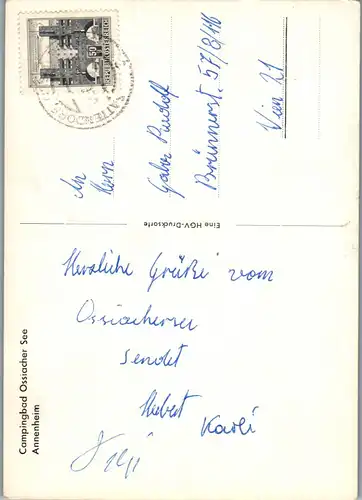 Campingbad Ossiacher See
Annenheim
Eine HGV-Drucksorte
Herzliche Grüße vom
Ossiachersee
sendet
Hubert
Karli
REPUBLIK ÖSTERREICH
50
An
Herrn
Gabor Rudolf
Brünnerst. 57/8/116
Wien 21